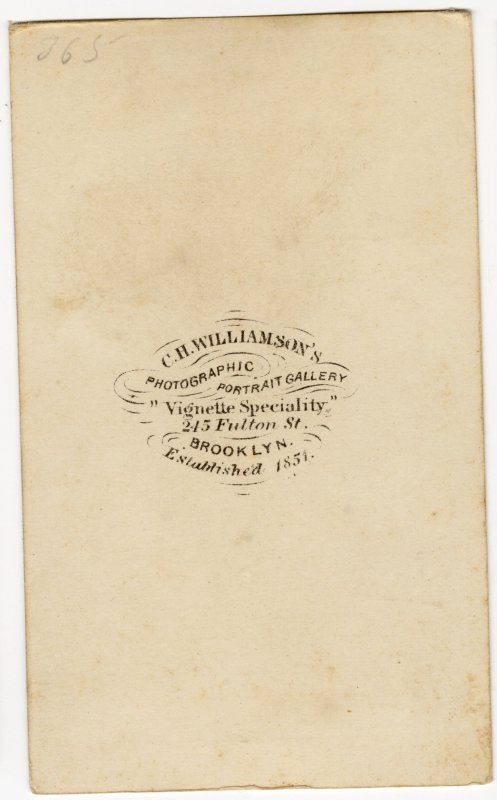 865
C.H.WILLIAMSON'S
PHOTOGRAPHIC
PORTRAIT GALLERY
"Vignette Speciality"
245 Fulton St.
BROOKLYN.
Established 1851.